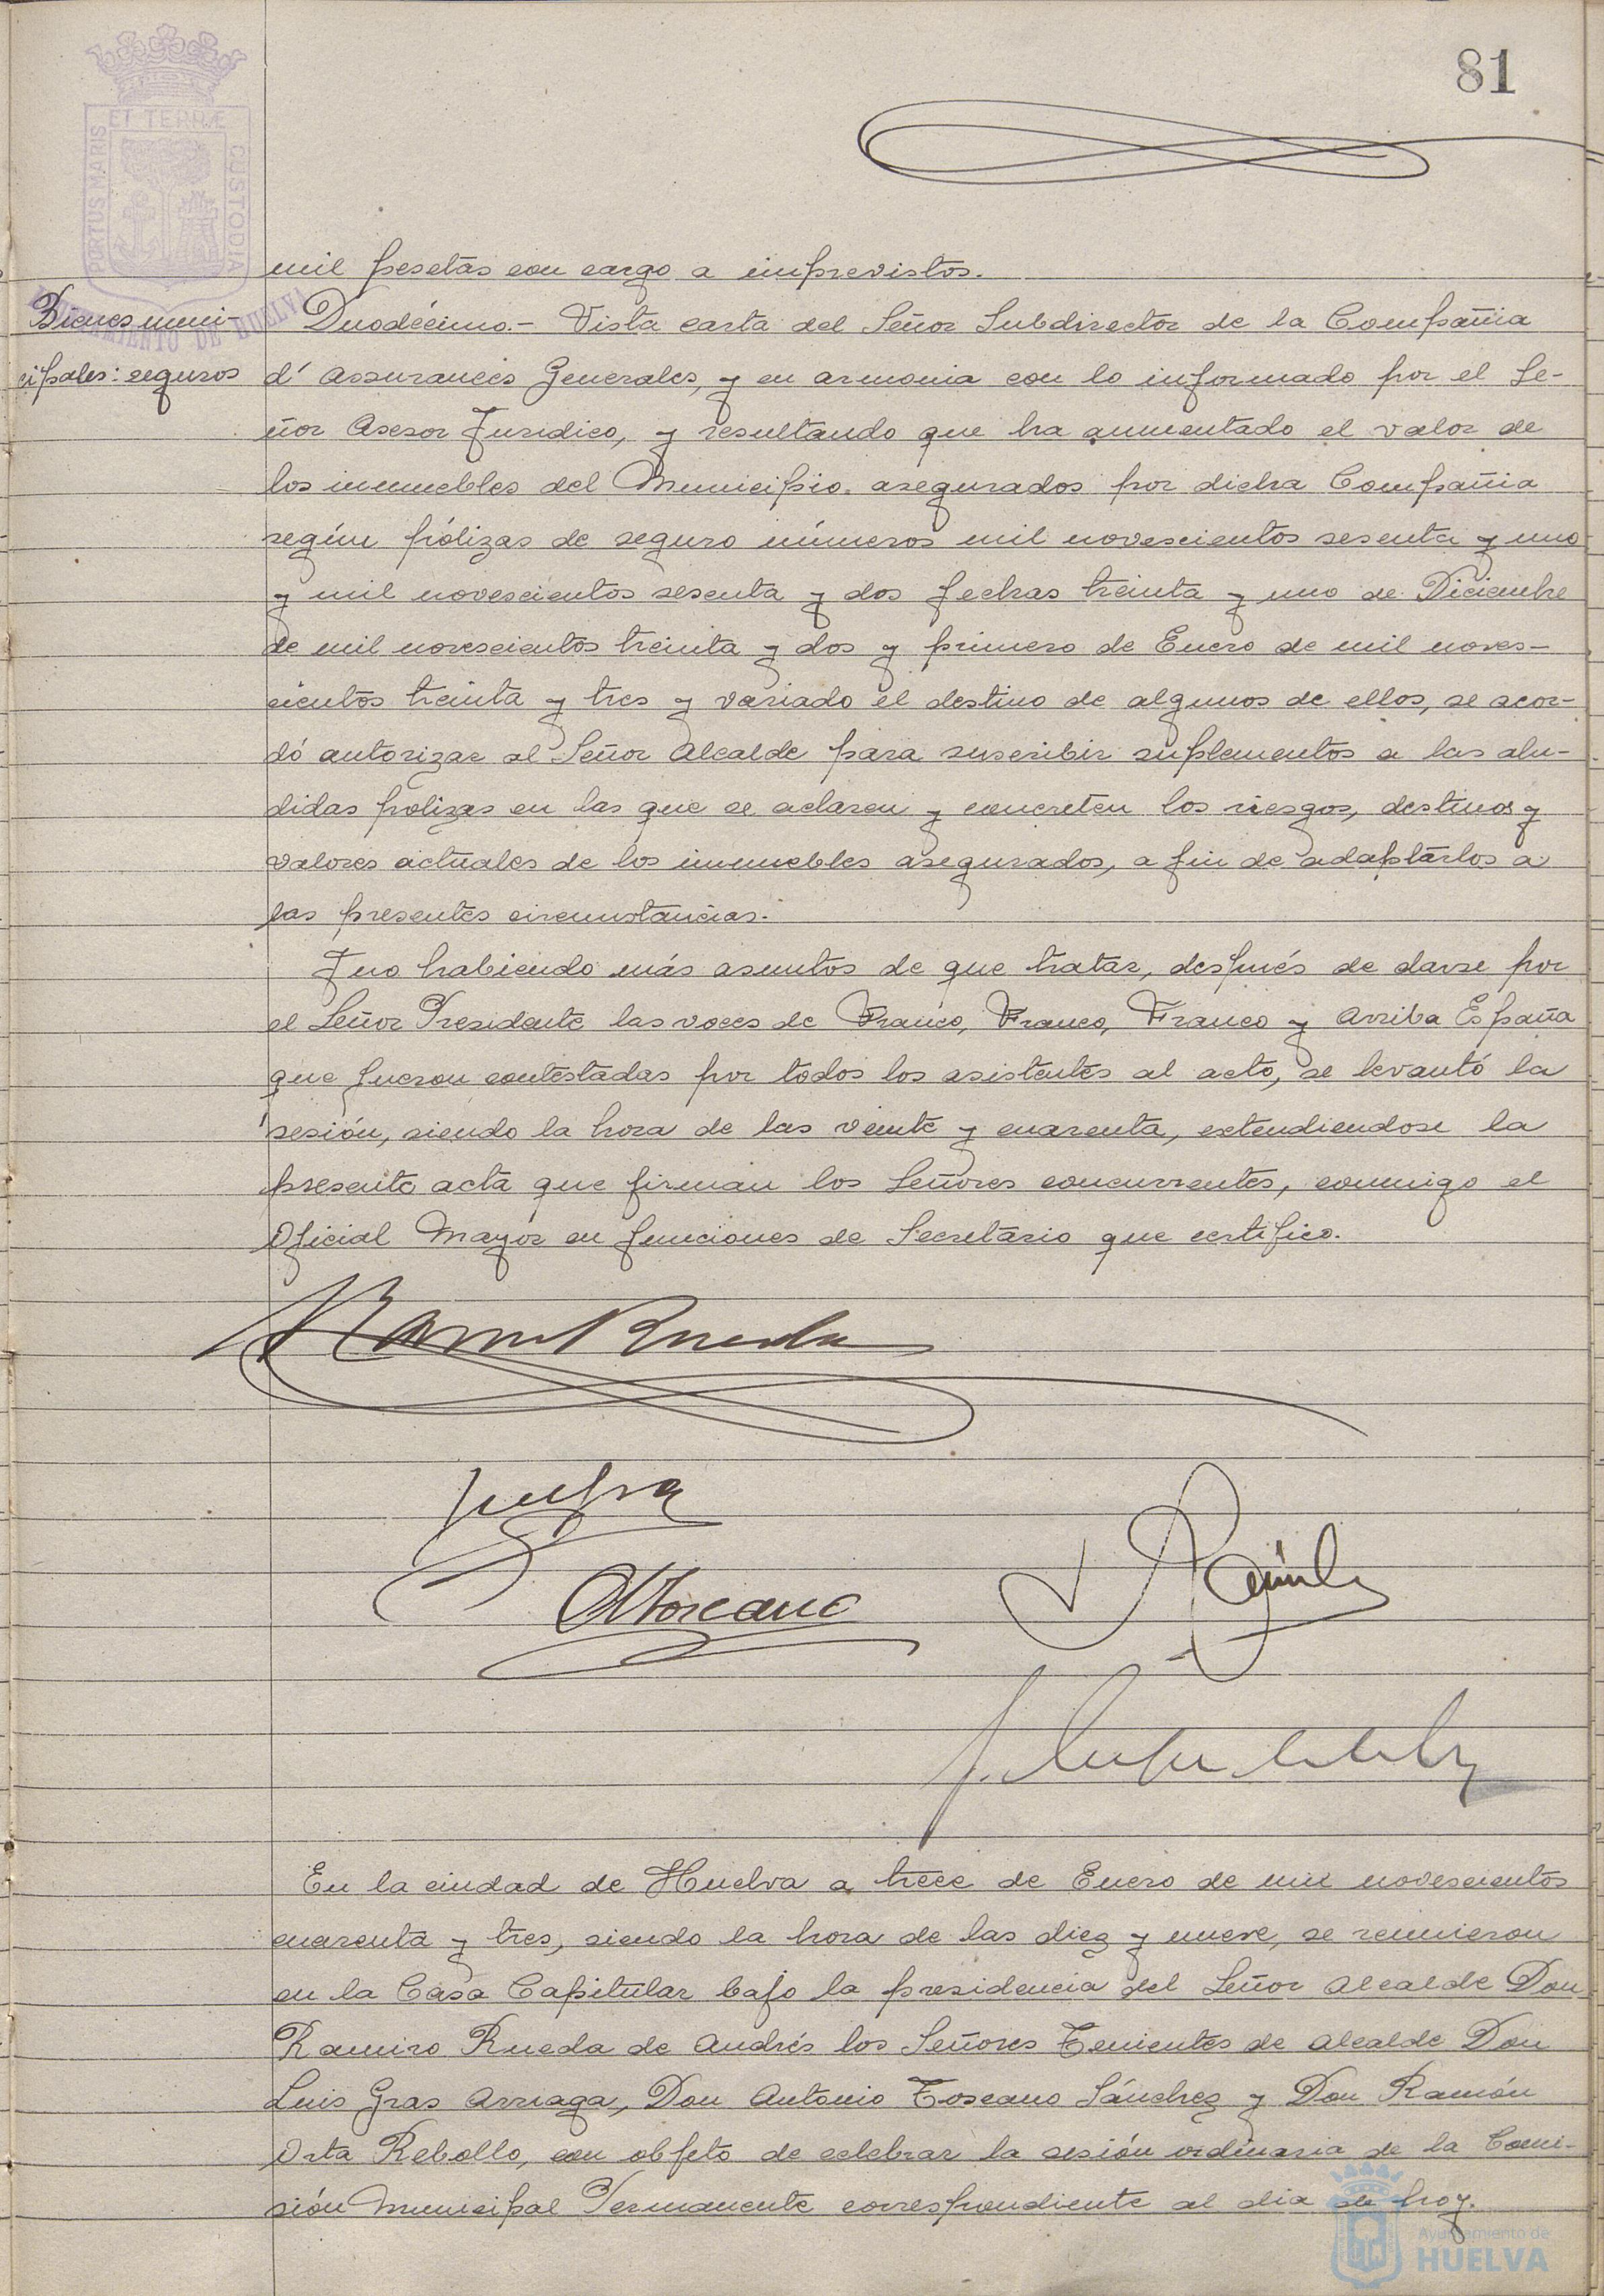 81
PORTUS MARIS ET TERRÆ CUSTODIA
AYUNTAMIENTO DE HUELVA
mil pesetas con cargo a imprevistos.
Bienes muni-
cipales: seguros
Duodécimo.- Vista carta del Señor Subdirector de la Compañia
d' Assurances Generales, y en armonia con lo informado por el Se-
ñor Asesor Juridico, y resultando que ha aumentado el valor de
los inmuebles del Municipio. asegurados por dicha Compañia
según pólizas de seguro números mil novescientos sesenta y uno
y mil novescientos sesenta y dos fechas treinta y uno de Diciembre
de mil novescientos treinta y dos y primero de Enero de mil noves-
cientos treinta y tres y variado el destino de algunos de ellos, se acor-
dó autorizar al Señor Alcalde para suscribir suplementos a las alu-
didas polizas en las que se aclaren y concreten los riesgos, destinos y
valores actuales de los inmuebles asegurados, a fin de adaptarlos a
las presentes circunstancias.
Y no habiendo más asuntos de que tratar, después de darse por
el Señor Presidente las voces de Franco, Franco, Franco y Arriba España
que fueron contestadas por todos los asistentes al acto, se levantó la
sesión, siendo la hora de las veinte y cuarenta, extendiendose la
presente acta que firman los Señores concurrentes, conmigo el
Oficial Mayor en funciones de Secretario que certifico.
Rueda
AToscano
En la ciudad de Huelva a trece de Enero de mil novescientos
cuarenta y tres, siendo la hora de las diez y nueve, se reunieron
en la Casa Capitular bajo la presidencia del Señor Alcalde Don
Ramiro Rueda de Andrés los Señores Tenientes de Alcalde Don
Luis Gras Arriaga, Don Antonio Toscano Sánchez y Don Ramón
Orta Rebollo, con objeto de celebrar la sesión ordinaria de la Comi-
sión Municipal Permanente correspondiente al dia de hoy.
Ayuntamiento de
HUELVA